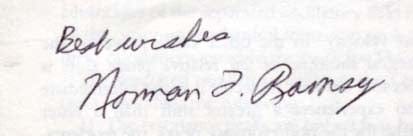 Best wishes
Norman F. Ramsey